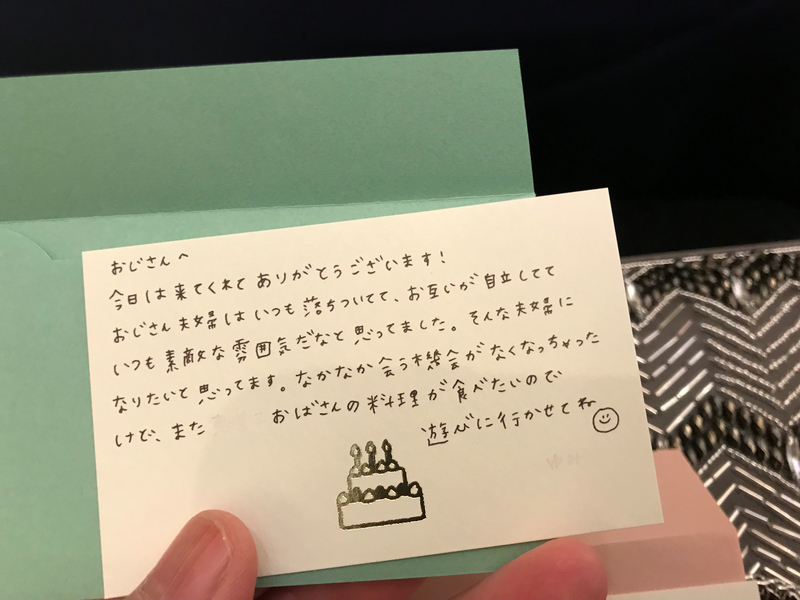 おじさんへ
今日は来てくれてありがとうございます！
おじさん夫婦はいつも落ちついてて、お互いが自立してて
いつも素敵な雰囲気だなと思ってました。そんな夫婦に
なりたいと思ってます。なかなか会う機会がなくなっちゃった
けど、また おばさんの料理が食べたいので
遊びに行かせてね